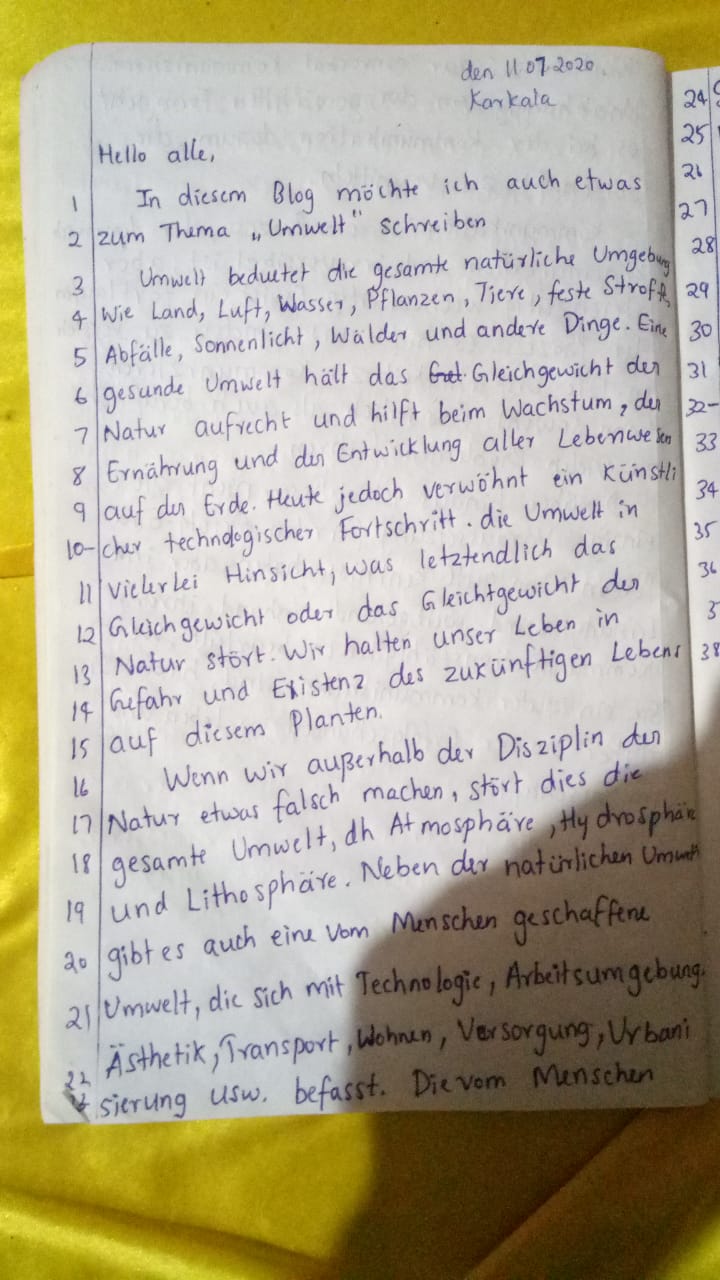 den 11.07.2020.
Karkala
Hello alle,
1 In diesem Blog möchte ich auch etwas
2 zum Thema „Umwelt" schreiben
3 Umwelt beduetet die gesamte natürliche Umgebung
4 Wie Land, Luft, Wasser, Pflanzen, Tiere, feste Stroffe,
5 Abfälle, Sonnenlicht, Wälder und andere Dinge. Eine
6 gesunde Umwelt hält das Gleichgewicht der
7 Natur aufrecht und hilft beim Wachstum, der
8 Ernährung und der Entwicklung aller Lebenwesen
9 auf der Erde. Heute jedoch verwöhnt ein Künstli
10 - cher technologischer Fortschritt. die Umwelt in
11 vielerlei Hinsicht, was letztendlich das
12 Gleichgewicht oder das Gleichtgewicht der
13 Natur stört. Wir halten unser Leben in
14 Gefahr und Existenz des zukünftigen Lebens
15 auf diesem Planten.
16 Wenn wir außerhalb der Disziplin der
17 Natur etwas falsch machen, stört dies die
18 gesamte Umwelt, dh Atmosphäre, Hydrosphäre
19 und Lithosphäre. Neben der natürlichen Umwelt
20 gibt es auch eine vom Menschen geschaffene
21 Umwelt, die sich mit Technologie, Arbeitsumgebung.
Ästhetik, Transport, Wohnen, Versorgung, Urbani
22 sierung usw. befasst. Die vom Menschen
24
25
26
27
28
29
30
31
32-
33
34
35
36
3
38